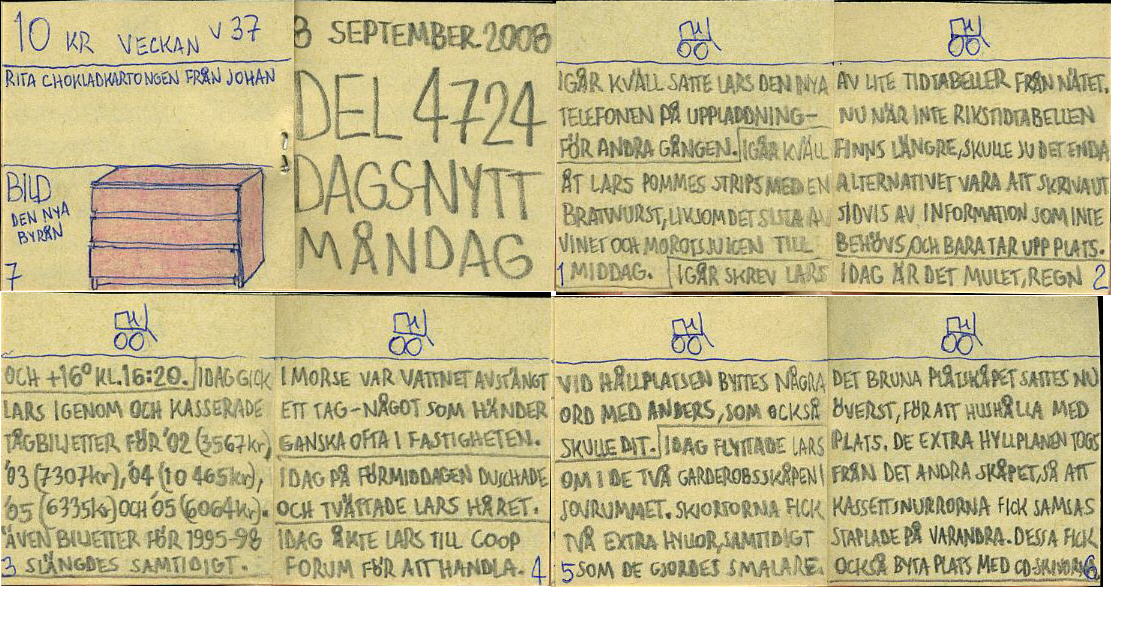 10 KR VECKAN V 37
RITA CHOKLADKARTONGEN FRÅN JOHAN
BILD
DEN NYA
BYRÅN
7
8 SEPTEMBER 2008
DEL 4724
DAGSNYTT
MÅNDAG
IGÅR KVÄLL SATTE LARS DEN NYA
TELEFONEN PÅ UPPLADDNING-
FÖR ANDRA GÅNGEN. IGÅR KVÄLL
ÅT LARS POMMES STRIPS MED EN
BRATWURST, LIKSOM DET SISTA AV
VINET OCH MOROTSJUICEN TILL
MIDDAG. IGÅR SKREV LARS
1
AV LITE TIDTABELLER FRÅN NÄTET.
NU NÄR INTE RIKSTIDTABELLEN
FINNS LÄNGRE, SKULLE JU DET ENDA
ALTERNATIVET VARA ATT SKRIVA UT
SIDVIS AV INFORMATION SOM INTE
BEHÖVS, OCH BARA TAR UPP PLATS.
IDAG ÄR DET MULET, REGN
2
OCH +16° KL.16:20. IDAG GICK
LARS IGENOM OCH KASSERADE
TÅGBILJETTER FÖR '02 (3567kr),
'03 (7307kr), '04 (10 465kr),
'05 (6335kr) OCH '05 (6064kr).
ÄVEN BILJETTER FÖR 1995-98
SLÄNGDES SAMTIDIGT.
3
I MORSE VAR VATTNET AVSTÄNGT
ETT TAG-NÅGOT SOM HÄNDER
GANSKA OFTA I FASTIGHETEN.
IDAG PÅ FÖRMIDDAGEN DUSCHADE
OCH TVÄTTADE LARS HÅRET.
IDAG ÅKTE LARS TILL COOP
FORUM FÖR ATT HANDLA.
4
VID HÅLLPLATSEN BYTTES NÅGRA
ORD MED ANDERS, SOM OCKSÅ
SKULLE DIT. IDAG FLYTTADE LARS
OM I DE TVÅ GARDEROBSSKÅPEN I
SOVRUMMET. SKJORTORNA FICK
TVÅ EXTRA HYLLOR, SAMTIDIGT
SOM DE GJORDES SMALARE.
5
DET BRUNA PLÅTSKÅPET SATTES NU
ÖVERST, FÖR ATT HUSHÅLLA MED
PLATS. DE EXTRA HYLLPLANEN TOGS
FRÅN DET ANDRA SKÅPET, SÅ ATT
KASSETTSNURRORNA FICK SAMSAS
STAPLADE PÅ VARANDRA. DESSA FICK
OCKSÅ BYTA PLATS MED
6